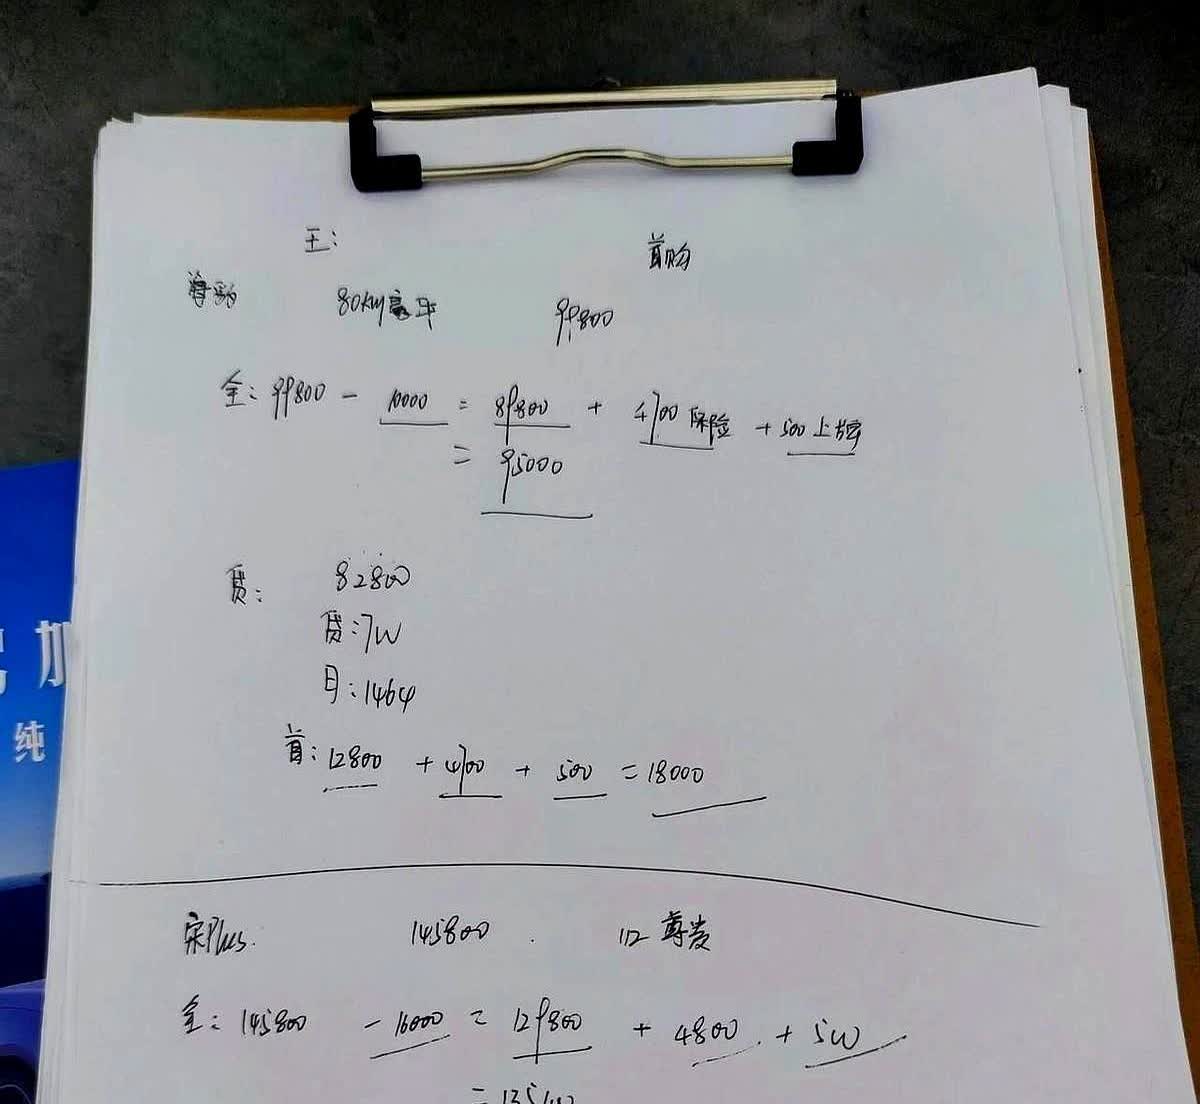 王： 首购
80km毫米 99800
全：99800 - 10000 = 89800 + 4700保险 + 500上牌
= 95000
贷： 82800
贷：7W
月：1464
首：12800 + 4700 + 500 = 18000
宋Plus. 145800 . 112尊贵
全：145800 - 16000 = 129800 + 4800 . + 500
= 135100
加
纯